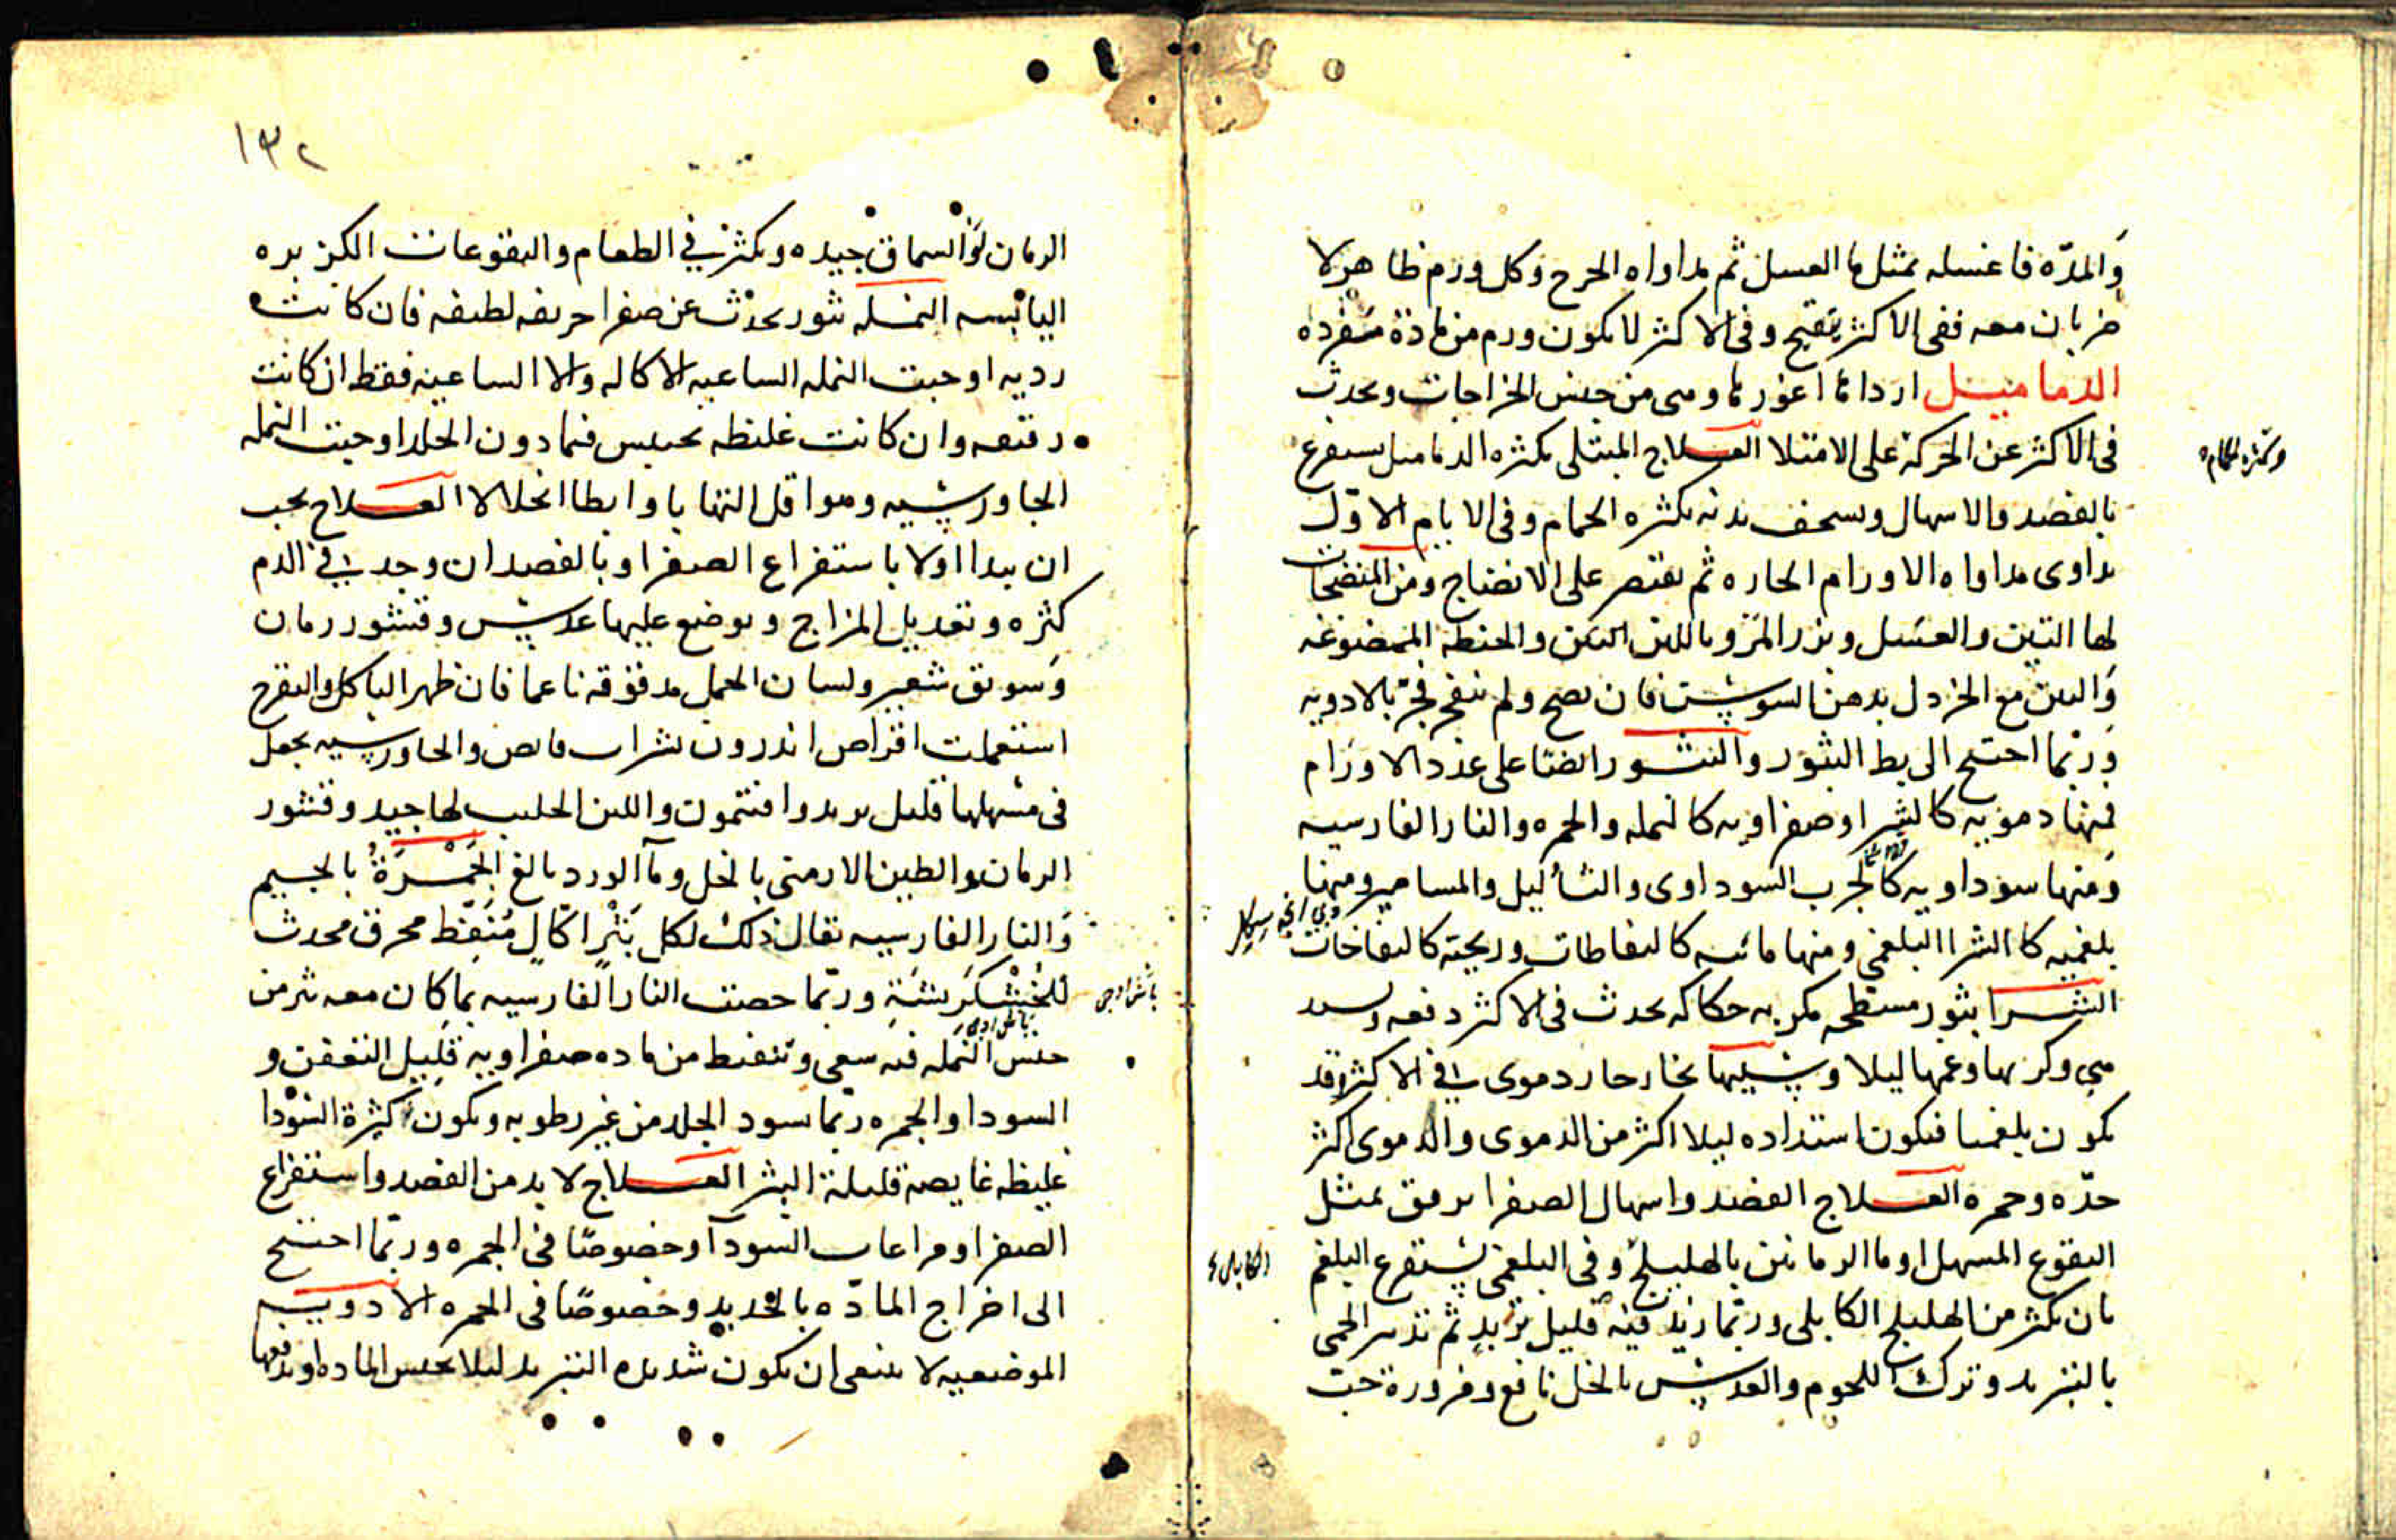 والمدّه فاغسله بمثل ماالعسل ثم مداواه الجرح وكل ورم ظاهر لا
ضربان معه ففى الاكثر يتقيح وفى الاكثر لا يكون ورم من مادة مفرده
الدماميل اردائها اغورها وهى من جنس الخراجات ويحدث
فى الاكثر عن الحركة على الامتلا العلاج المبتلى بكثره الدماميل يستفرغ
بالفصد والاسهال ويسخف بدنه بكثره الحمام وفى الايام الاوّل
يداوى مداواه الاورام الحاره ثم يقتصر على الانضاج ومن المنضجات
لها التين والعسل وبزر المرو باللبن التين والحنطه الممضوغه
والتين مع الخردل بدهن السوسن فان نضج ولم ينفجر فجّر بالادويه
وربّما احتيج الى بط البثور والبثور ايضًا على عدد الاورام
فمنها دمويه كالشرا وصفراويه كالنمله والجمره والنار الفارسيه
ومنها سوداويه كالجرب السوداوى والثآليل والمسامير ومنها
بلغميه كالشرا البلغمى ومنها مائيه كالنفاطات وريحيّه كالنفاخات
الشرا بثور مسطحه مكربه حكاكه يحدث فى الاكثر دفعه
وكربها وغمها ليلا وسببها بخار حار دموى فى الاكثر وقد
يكون بلغميا فيكون استداده ليلا اكثر من الدموى والدموى اكثر
حدّه وحمره العلاج الفصد واسهال الصفرا برفق بمثل
النقوع المسهل او ما الرمانين بالهليلج وفى البلغمى يستفرغ البلغم
بان يكثر من الهليلج الكابلى وربّما زيد فيه قليل تربد ثم تدبير الحمى
بالتبريد وترك اللحوم والعدس بالخل نافع ومزورة حب
وبكثره الحمام
الكابلى
١٣٢
الرمان والسماق جيده ويكثر فى الطعام والنقوعات الكزبره
اليابسه النمله بثور يحدث عن صفرا حريفه لطيفه فان كانت
رديه اوجبت النمله الساعيه الاكاله والا الساعيه فقط ان كانت
رقيقه وان كانت غليظه تحتبس فيما دون الجلد اوجبت النمله
الجاورسيه وهو اقل التهابا وابطا انحلالا العلاج يجب
ان يبدا اولا باستفراغ الصفرا وبالفصد ان وجد فى الدم
كثره وتعديل المزاج ويوضع عليها عدس وقشور رمان
وسويق شعير ولسان الحمل مدقوقه ناعما فان ظهر التاكل والتقرح
استعملت اقراص اندرون بشراب قابض والجاورسيه يجعل
فى مسهلها قليل تربد وافتيمون واللبن الحليب لها جيد وقشور
الرمان والطين الارمنى بالخل ومآ الورد بالغ الجَمْرَةُ بالجيم
والنار الفارسيه يقال ذلك لكل بَثْرٍ اكّالٍ مُنَفِّط محرق محدث
للخُشْكَرِيشَةِ وربّما خصت النار الفارسيه بما كان معه بثر من
جنس النمله فيه سعى وتنفيط من ماده صفراويه قليل التعفن و
السودا والجمره ربّما سود الجلد من غير رطوبه ويكون كثيرة السَّوْدا
غليظه غايصه قليلة البثر العلاج لا بد من الفصد واستفراغ
الصفرا ومراعات السودآ وخصوصًا فى الجمره وربّما احتيج
الى اخراج المادّه بالحديد وخصوصًا فى الجمره الادويه
الموضعيه لا ينبغى ان يكون شديده التبريد ليلا يحبس الماده او يدفعها